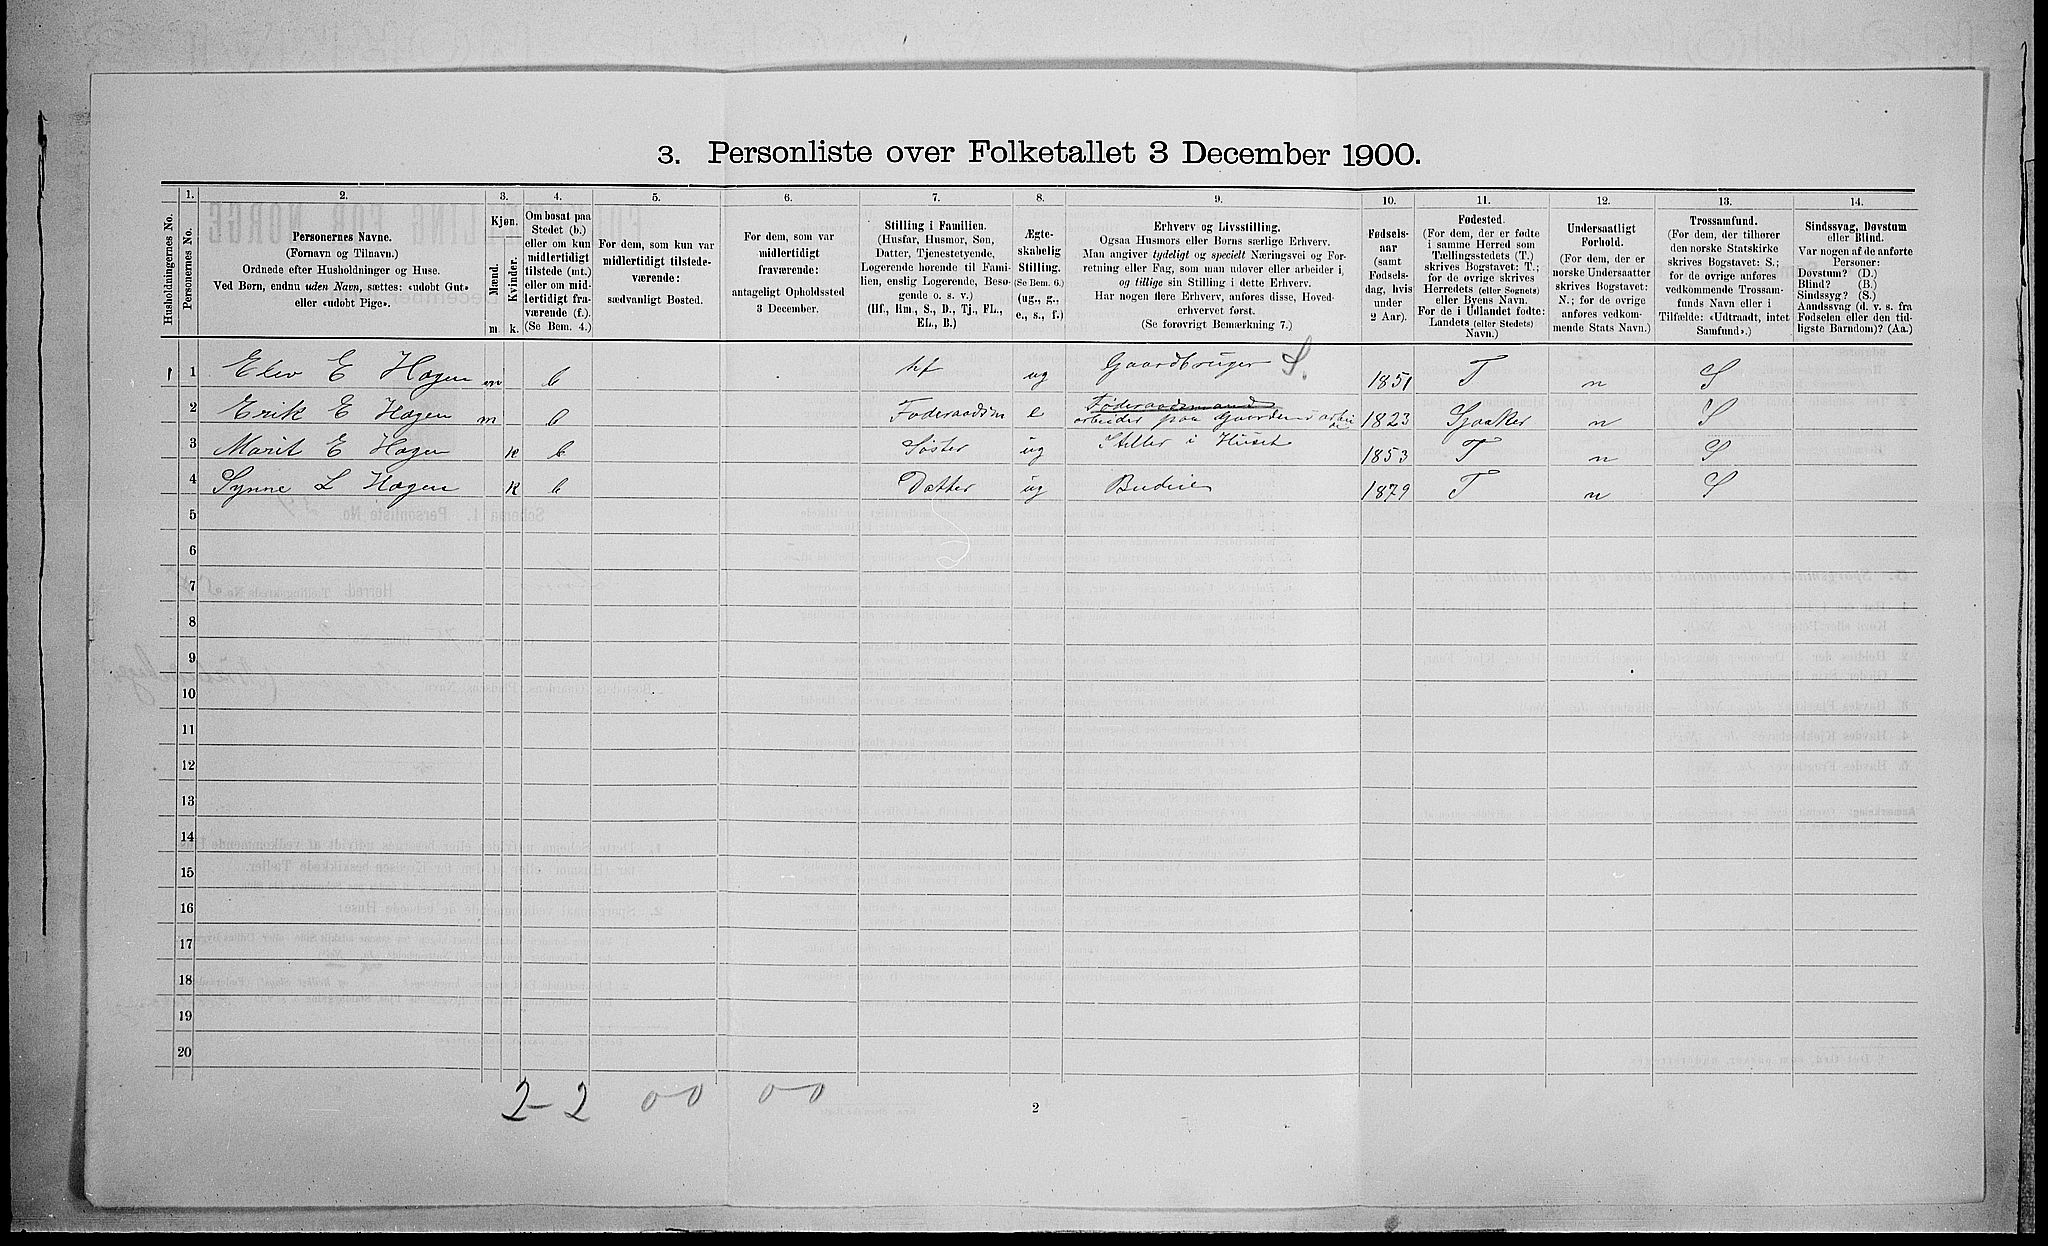 3. Personliste over Folketallet 3 December 1900.
Husholdningernes No.
1. Personernes No.
2. Personernes Navne. (Fornavn og Tilnavn.) Ordnede efter Husholdninger og Huse. Ved Børn, endnu uden Navn, sættes: «udøbt Gut» eller «udøbt Pige».
3. Kjøn. Mænd. m. Kvinder. k.
4. Om bosat paa Stedet (b.) eller om kun midlertidigt tilstede (mt.) eller om midlertidigt fraværende (f.). (Se Bem. 4.)
5. For dem, som kun var midlertidigt tilstedeværende: sædvanligt Bosted.
6. For dem, som var midlertidigt fraværende: antageligt Opholdssted 3 December.
7. Stilling i Familien. (Husfar, Husmor, Søn, Datter, Tjenestetyende, Logerende hørende til Familien, enslig Logerende, Besøgende o. s. v.) (Hf., Hm., S., D., Tj., FL., EL., B.)
8. Ægteskabelig Stilling. (Se Bem. 6.) (ug., g., e., s., f.)
9. Erhverv og Livsstilling. Ogsaa Husmors eller Børns særlige Erhverv. Man angiver tydeligt og specielt Næringsvei og Forretning eller Fag, som man udøver eller arbeider i, og tillige sin Stilling i dette Erhverv. Har nogen flere Erhverv, anføres disse, Hovederhvervet først. (Se forøvrigt Bemærkning 7.)
10. Fødselsaar (samt Fødselsdag, hvis under 2 Aar).
11. Fødested. (For dem, der er født i samme Herred som Tællingsstedets (T.) skrives Bogstavet: T.; for de øvrige skrives Herredets (eller Sognets) eller Byens Navn. For de i Udlandet fødte: Landets (eller Stedets) Navn.)
12. Undersaatligt Forhold. (For dem, der er norske Undersaatter skrives Bogstavet: N.; for de øvrige anføres vedkommende Stats Navn.)
13. Trossamfund. (For dem, der tilhører den norske Statskirke skrives Bogstavet: S.; for de øvrige anføres vedkommende Trossamfunds Navn eller i Tilfælde: «Udtraadt, intet Samfund».)
14. Sindssvag, Døvstum eller Blind. Var nogen af de anførte Personer: Døvstum? (D.) Blind? (B.) Sindssyg? (S.) Aandssvag (d. v. s. fra Fødselen eller den tidligste Barndom)? (Aa.)
1 1 Elev E Hagen m b hf ug Gaardbruger S. 1851 T n S
2 Erik E Hagen m b Foderaadsm e Føderaadsmand arbeider paa Gaarden 1823 Gjaaker n S
3 Marit E Hagen k b Søster ug Steller i Huset 1853 T n S
4 Synne L Hagen k b Datter ug Budeie 1879 T n S
5
6
7
8
9
10
11
12
13
14
15
16
17
18
19
20
2-2 0-0 0-0
2